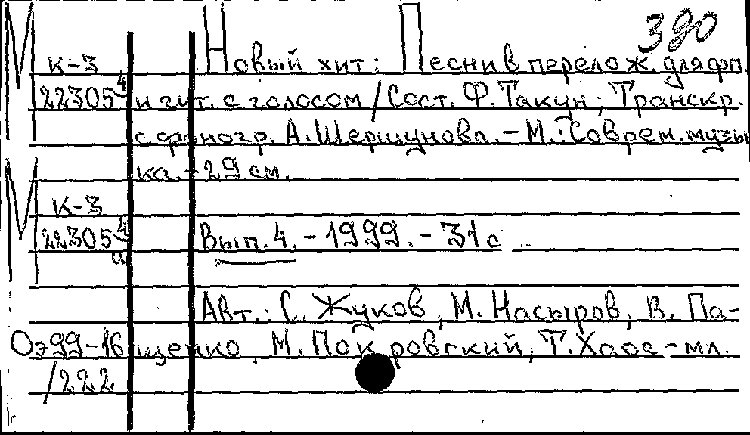 380
М
к-3 Новый хит: Песни в перелож. для фп.
22305-4 и гит. с голосом / Сост. Ф. Такун; Транскр.
с фоногр. А. Шершунова. – М.: Соврем. музы
ка. – 29 см.
М
к-3
22305-4 Вып. 4. – 1999. – 31 с
а
Авт.: С. Жуков, М. Насыров, В. Па-
Оэ99-16 щенко, М. Покровский, Т. Хаос-мл.
/222